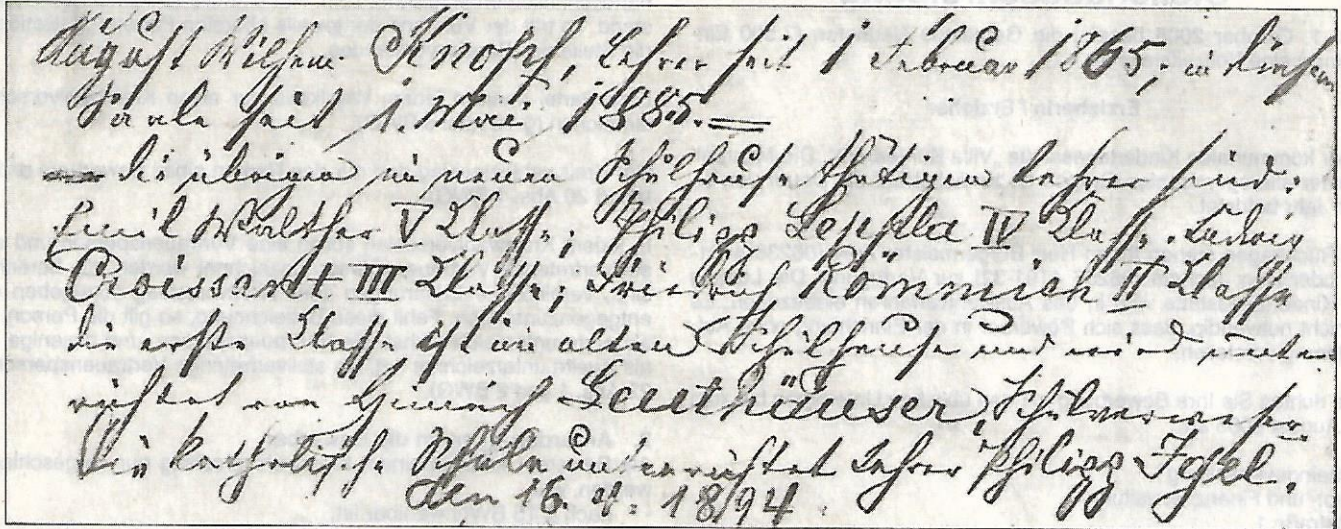 August Wilhelm Knopf, Lehrer seit 1 Februar 1865, in diesem
Saale seit 1. Mai 1885.
die übrigen im neuen Schulhause thätigen Lehrer sind:
Emil Walther V Klasse; Philipp IV Klasse. Ludwig
Croissant III Klasse; Friedr. Kömmich II Klasse
die erste Klasse ist im alten Schulhause und wird unter-
richtet von Heinrich Lauthäuser, Schulverweser.
Die kathol. Schule unterrichtet Lehrer Philipp Josel.
den 16. 1894.